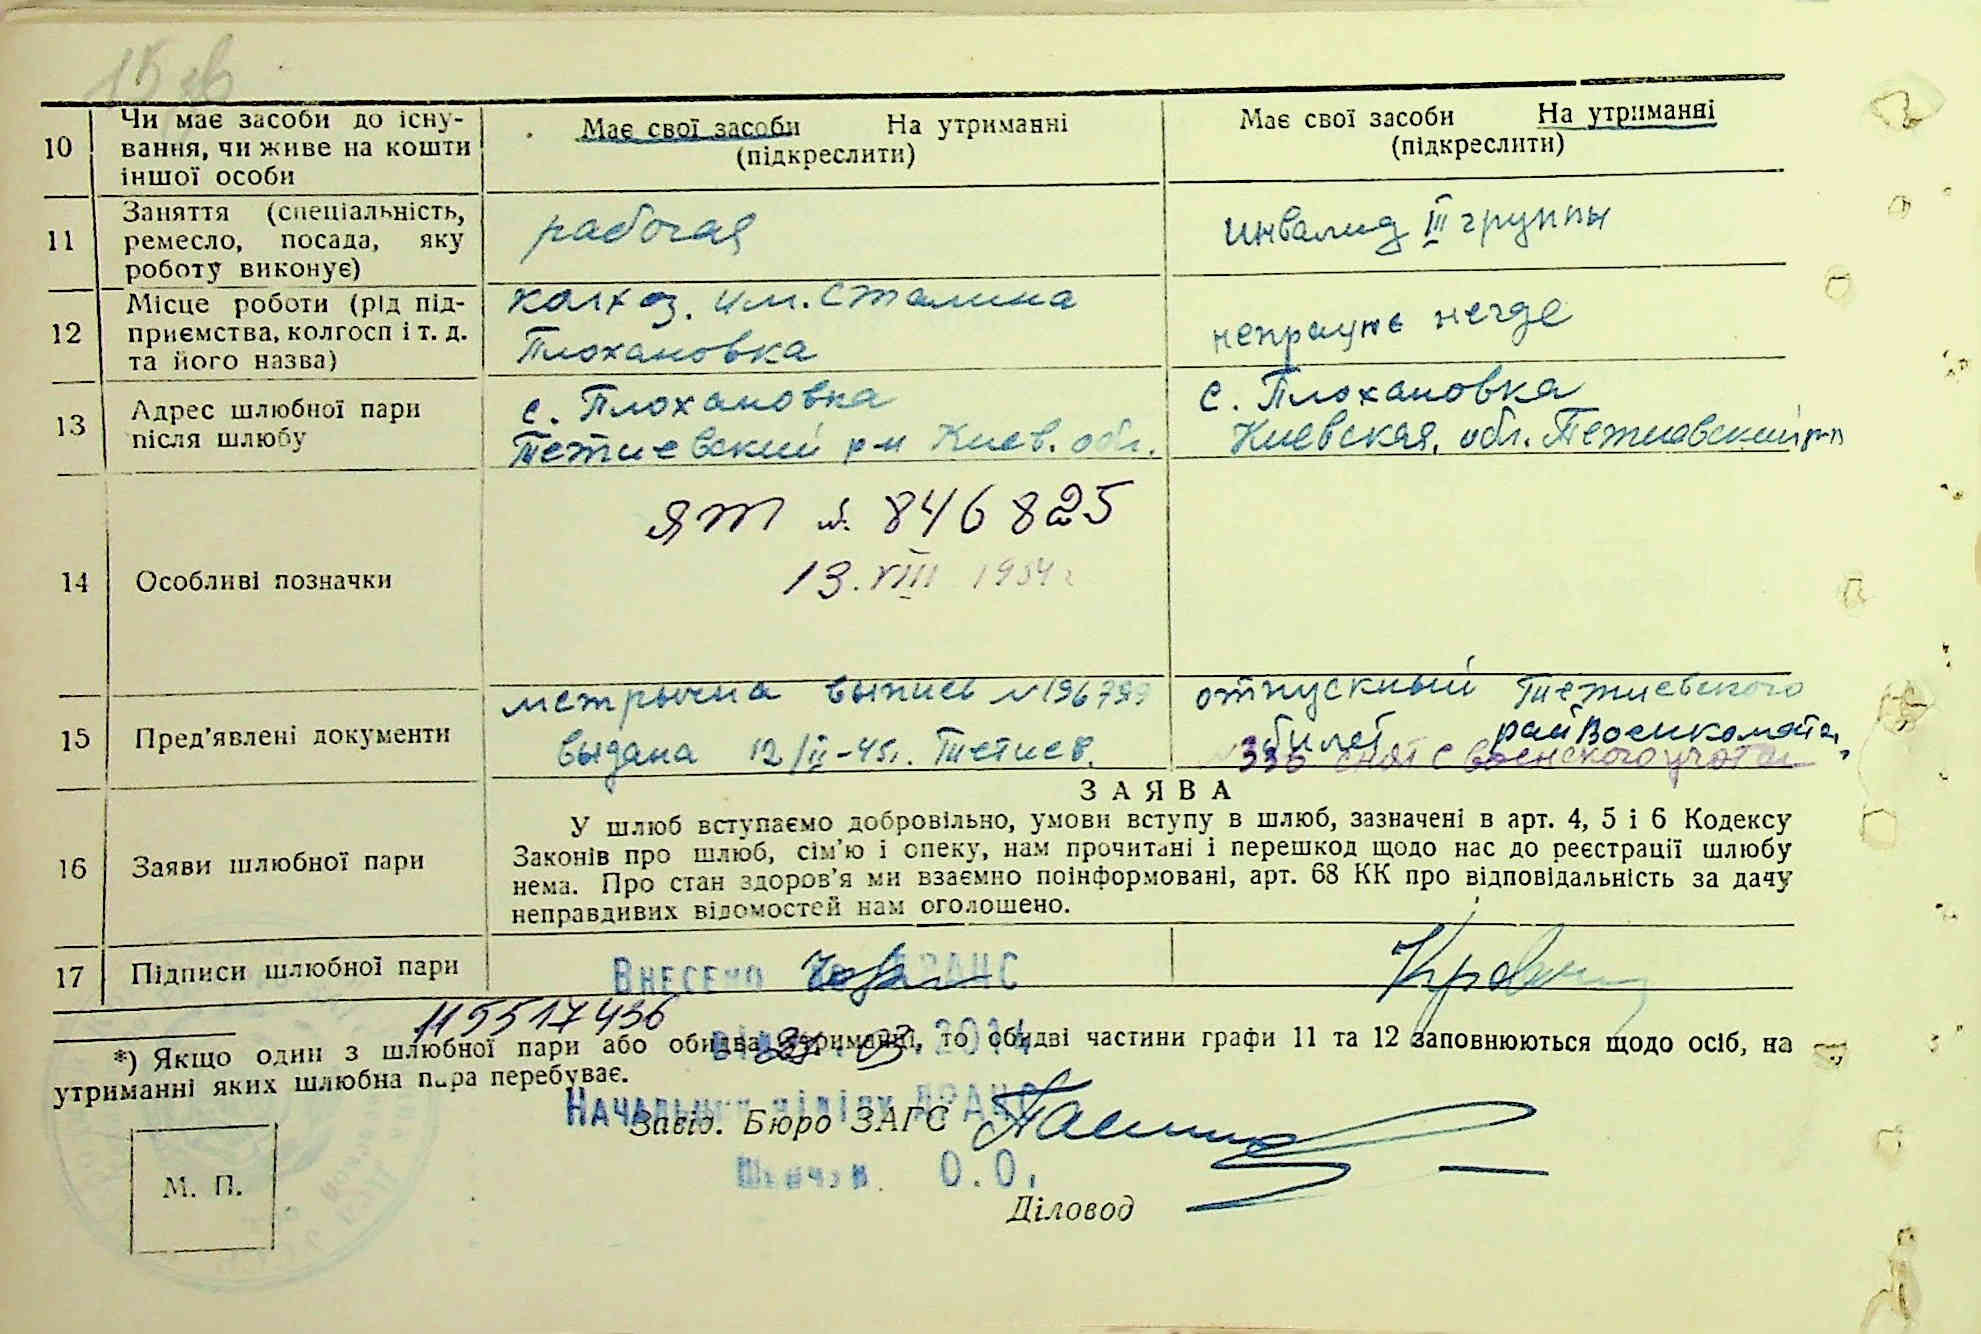 10
Чи має засоби до існу-
вання, чи живе на кошти
іншої особи
Має свої засоби На утриманні
(підкреслити)
Має свої засоби На утриманні
(підкреслити)
11
Заняття (спеціальність,
ремесло, посада, яку
роботу виконує)
рабочая
инвалид III группы
12
Місце роботи (рід під-
приємства, колгосп і т. д.
та його назва)
колхоз. им. Сталина
Плохановка
нигде
13
Адрес шлюбної пари
після шлюбу
с. Плохановка
Тетиевский р-н Киев. обл.
с. Плохановка
Киевская. обл. Тетиевский р-н
14
Особливі позначки
ЯТ № 846825
13. VIII 1954 г
15
Пред'явлені документи
метрычна выпись №
выдана 12/II-45г. Тетиев.
отпускный Тетиевского
билет райвоенкомата,
336 снят с воєнского учота
16
Заяви шлюбної пари
ЗАЯВА
У шлюб вступаємо добровільно, умови вступу в шлюб, зазначені в арт. 4, 5 і 6 Кодексу
Законів про шлюб, сім'ю і опеку, нам прочитані і перешкод щодо нас до реєстрації шлюбу
нема. Про стан здоров'я ми взаємно поінформовані, арт. 68 КК про відповідальність за дачу
неправдивих відомостей нам оголошено.
17
Підписи шлюбної пари
Внесено до ДРАЦС
115517436
03.2014
*) Якщо один з шлюбної пари або обидва на утриманні, то обидві частини графи 11 та 12 заповнюються щодо осіб, на
утриманні яких шлюбна пара перебуває.
Начальник відділу ДРАЦС
Завід. Бюро ЗАГС
О.О.
Діловод
М. П.